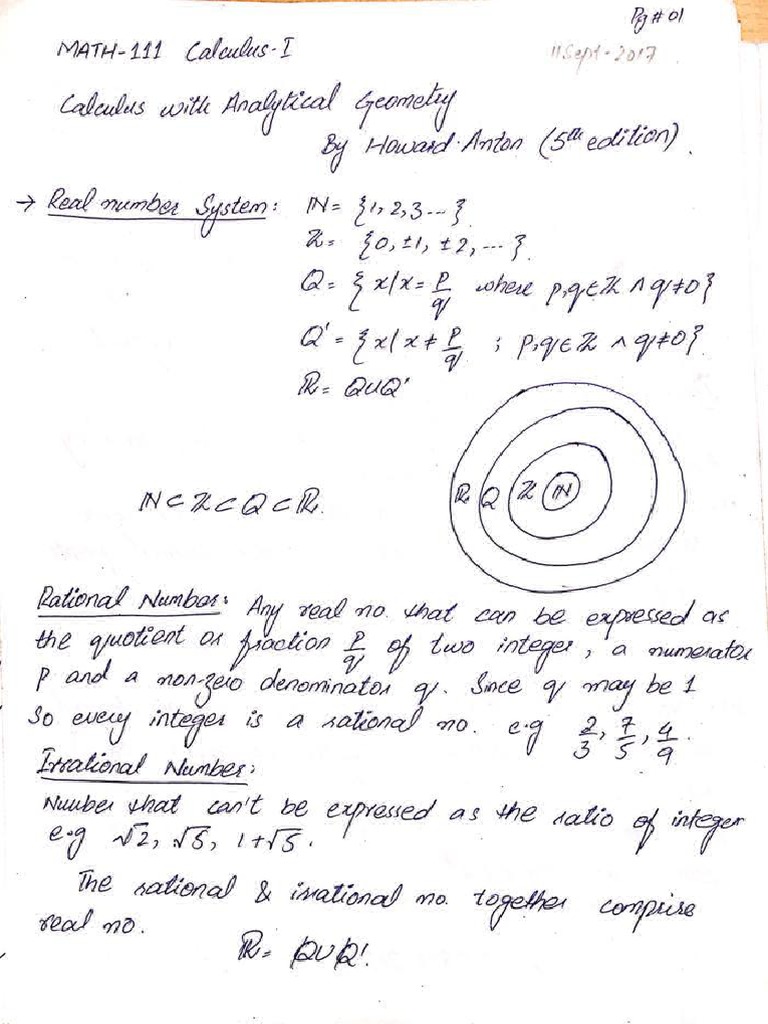 Pg # 01
MATH-111 Calculus-I
11 Sept-2017
Calculus with Analytical Geometry
By Howard Anton (5th edition).
→ Real number System: ℕ = {1, 2, 3 ...}
ℤ = {0, ±1, ±2, ...}
Q = {x/x = p/q where p,q ∈ ℤ ∧ q ≠ 0}
Q' = {x/x ≠ p/q ; p,q ∈ ℤ ∧ q ≠ 0}
ℝ = Q∪Q'
ℝ Q ℤ ℕ
ℕ ⊂ ℤ ⊂ Q ⊂ ℝ.
Rational Number: Any real no. that can be expressed as
the quotient or fraction p/q of two integer, a numerator
p and a non-zero denominator q. Since q may be 1
So every integer is a rational no. e.g 2/3, 7/5, 4/9.
Irrational Number:
Number that can't be expressed as the ratio of integer
e.g √2, √5, 1+√5.
The rational & irrational no. together comprise
real no.
ℝ = Q∪Q'.